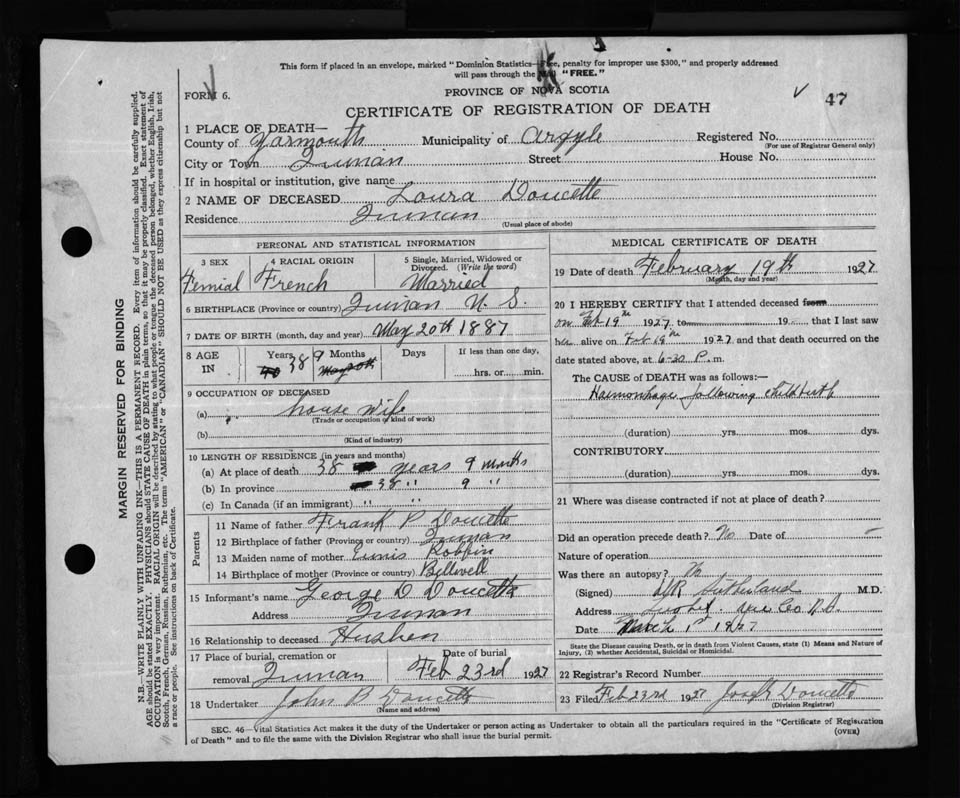 This form if placed in an envelope, marked "Dominion Statistics—Free, penalty for improper use $300," and properly addressed
will pass through the "FREE."
FORM 6.
PROVINCE OF NOVA SCOTIA
47
CERTIFICATE OF REGISTRATION OF DEATH
1 PLACE OF DEATH—
County of Yarmouth Municipality of Argyle Registered No.
(For use of Registrar General only)
City or Town Quinan Street House No.
If in hospital or institution, give name
2 NAME OF DECEASED Loura Doucette
Residence Quinan
(Usual place of abode)
PERSONAL AND STATISTICAL INFORMATION
3 SEX 4 RACIAL ORIGIN 5 Single, Married, Widowed or
Divorced. (Write the word)
Femial French Married
6 BIRTHPLACE (Province or country) Quinan N. S.
7 DATE OF BIRTH (month, day and year) May 20th 1887
8 AGE Years Months Days If less than one day,
IN 38 9 hrs. or min.
9 OCCUPATION OF DECEASED
(a) house wife
(Trade or occupation or kind of work)
(b)
(Kind of industry)
10 LENGTH OF RESIDENCE (in years and months)
(a) At place of death 38 years 9 months
(b) In province 38 " 9 "
(c) In Canada (if an immigrant) " "
Parents
11 Name of father Frank P Doucette
12 Birthplace of father (Province or country) Quinan
13 Maiden name of mother Eunis Robbin
14 Birthplace of mother (Province or country) Bellwell
15 Informant's name George D Doucette
Address Quinan
16 Relationship to deceased Husben
17 Place of burial, cremation or Date of burial
removal Quinan Feb 23rd 1927
18 Undertaker John B Doucette
(Name and address)
MEDICAL CERTIFICATE OF DEATH
19 Date of death February 19th 1927
(Month, day and year)
20 I HEREBY CERTIFY that I attended deceased from
on Feb 19th 1927 to 19 that I last saw
her alive on Feb 19th 1927 and that death occurred on the
date stated above, at 6-30 P. m.
The CAUSE of DEATH was as follows:—
Haemorrhage following childbirth
(duration) yrs. mos. dys.
CONTRIBUTORY
(duration) yrs. mos. dys.
21 Where was disease contracted if not at place of death?
Did an operation precede death? No Date of –
Nature of operation
Was there an autopsy? No
(Signed) Sutherland M.D.
Address Co N.S.
Date March 1st 1927
State the Disease causing Death, or in death from Violent Causes, state (1) Means and Nature of
Injury, (2) whether Accidental, Suicidal or Homicidal.
22 Registrar's Record Number
23 Filed Feb 23rd 1927 Joseph Doucette
(Division Registrar)
SEC. 46—Vital Statistics Act makes it the duty of the Undertaker or person acting as Undertaker to obtain all the particulars required in the "Certificate of Registration
of Death" and to file the same with the Division Registrar who shall issue the burial permit.
(OVER)
MARGIN RESERVED FOR BINDING
N.B.—WRITE PLAINLY WITH UNFADING INK—THIS IS A PERMANENT RECORD. Every item of information should be carefully supplied.
AGE should be stated EXACTLY. PHYSICIANS should STATE CAUSE OF DEATH in plain terms, so that it may be properly classified. Exact statement of
OCCUPATION is very important. RACIAL ORIGIN will be described by stating to what people or tongue the deceased person belonged, whether English, Irish,
Scotch, French, German, Russian, Ruthenian, etc. The terms "AMERICAN" or "CANADIAN" SHOULD NOT BE USED as they express citizenship but not
a race or people. See instructions on back of Certificate.